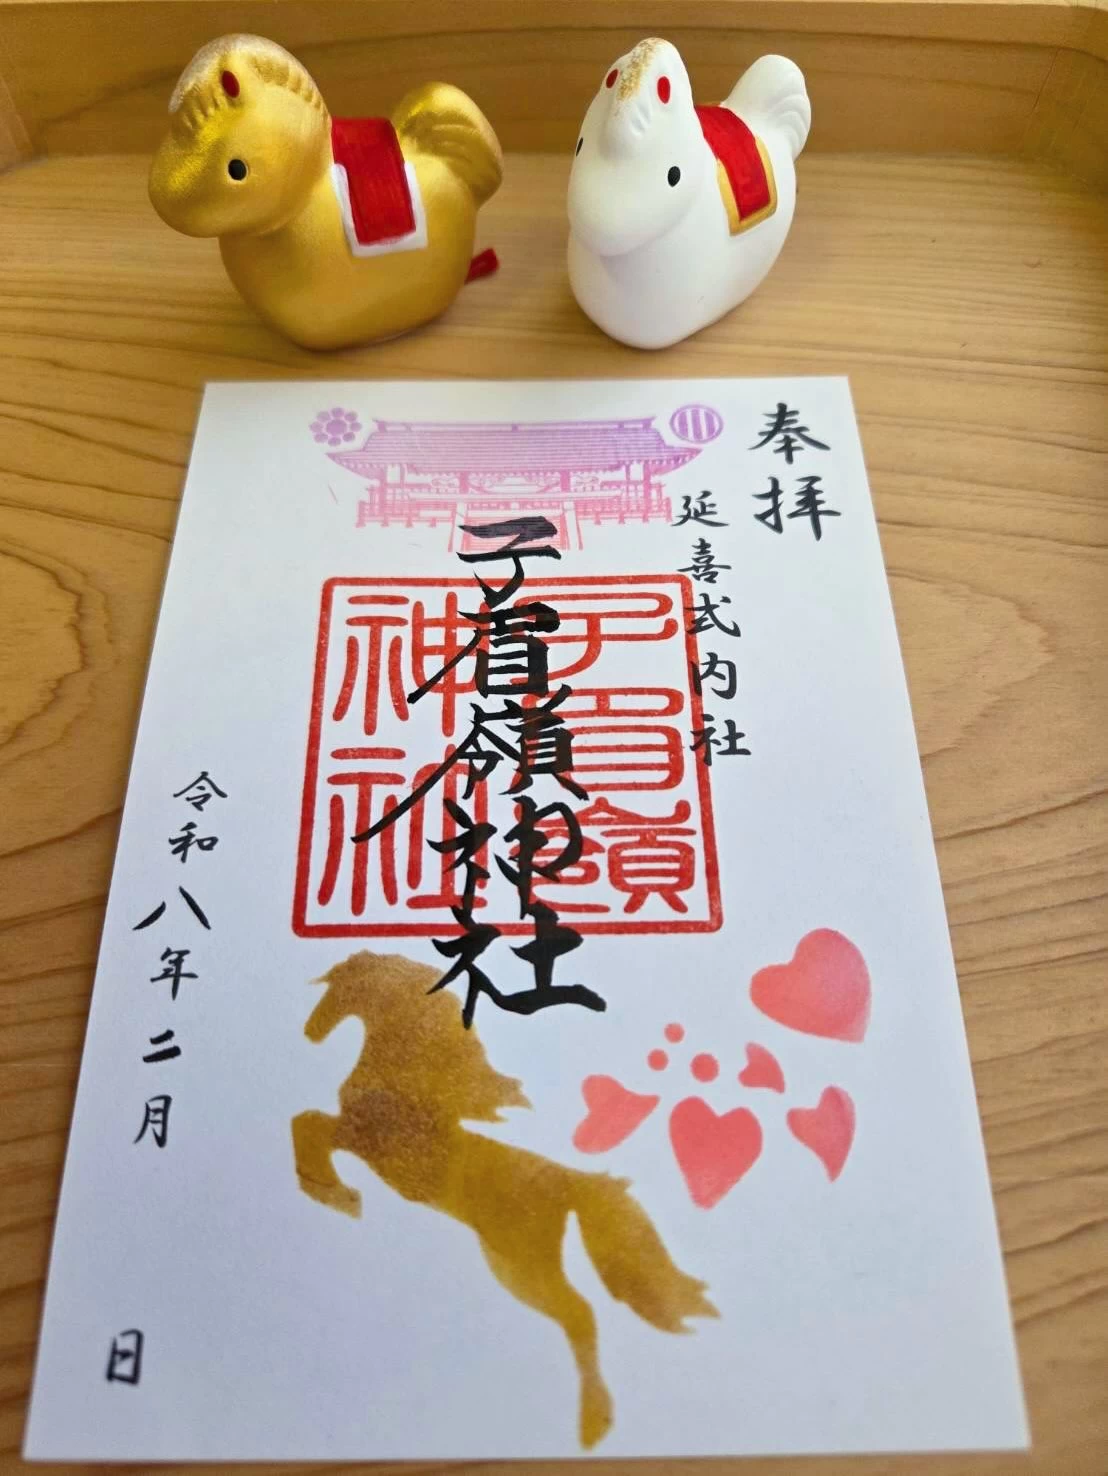 奉拝
延喜式内社
子眉嶺神社
子眉嶺
神社
令和八年二月 日